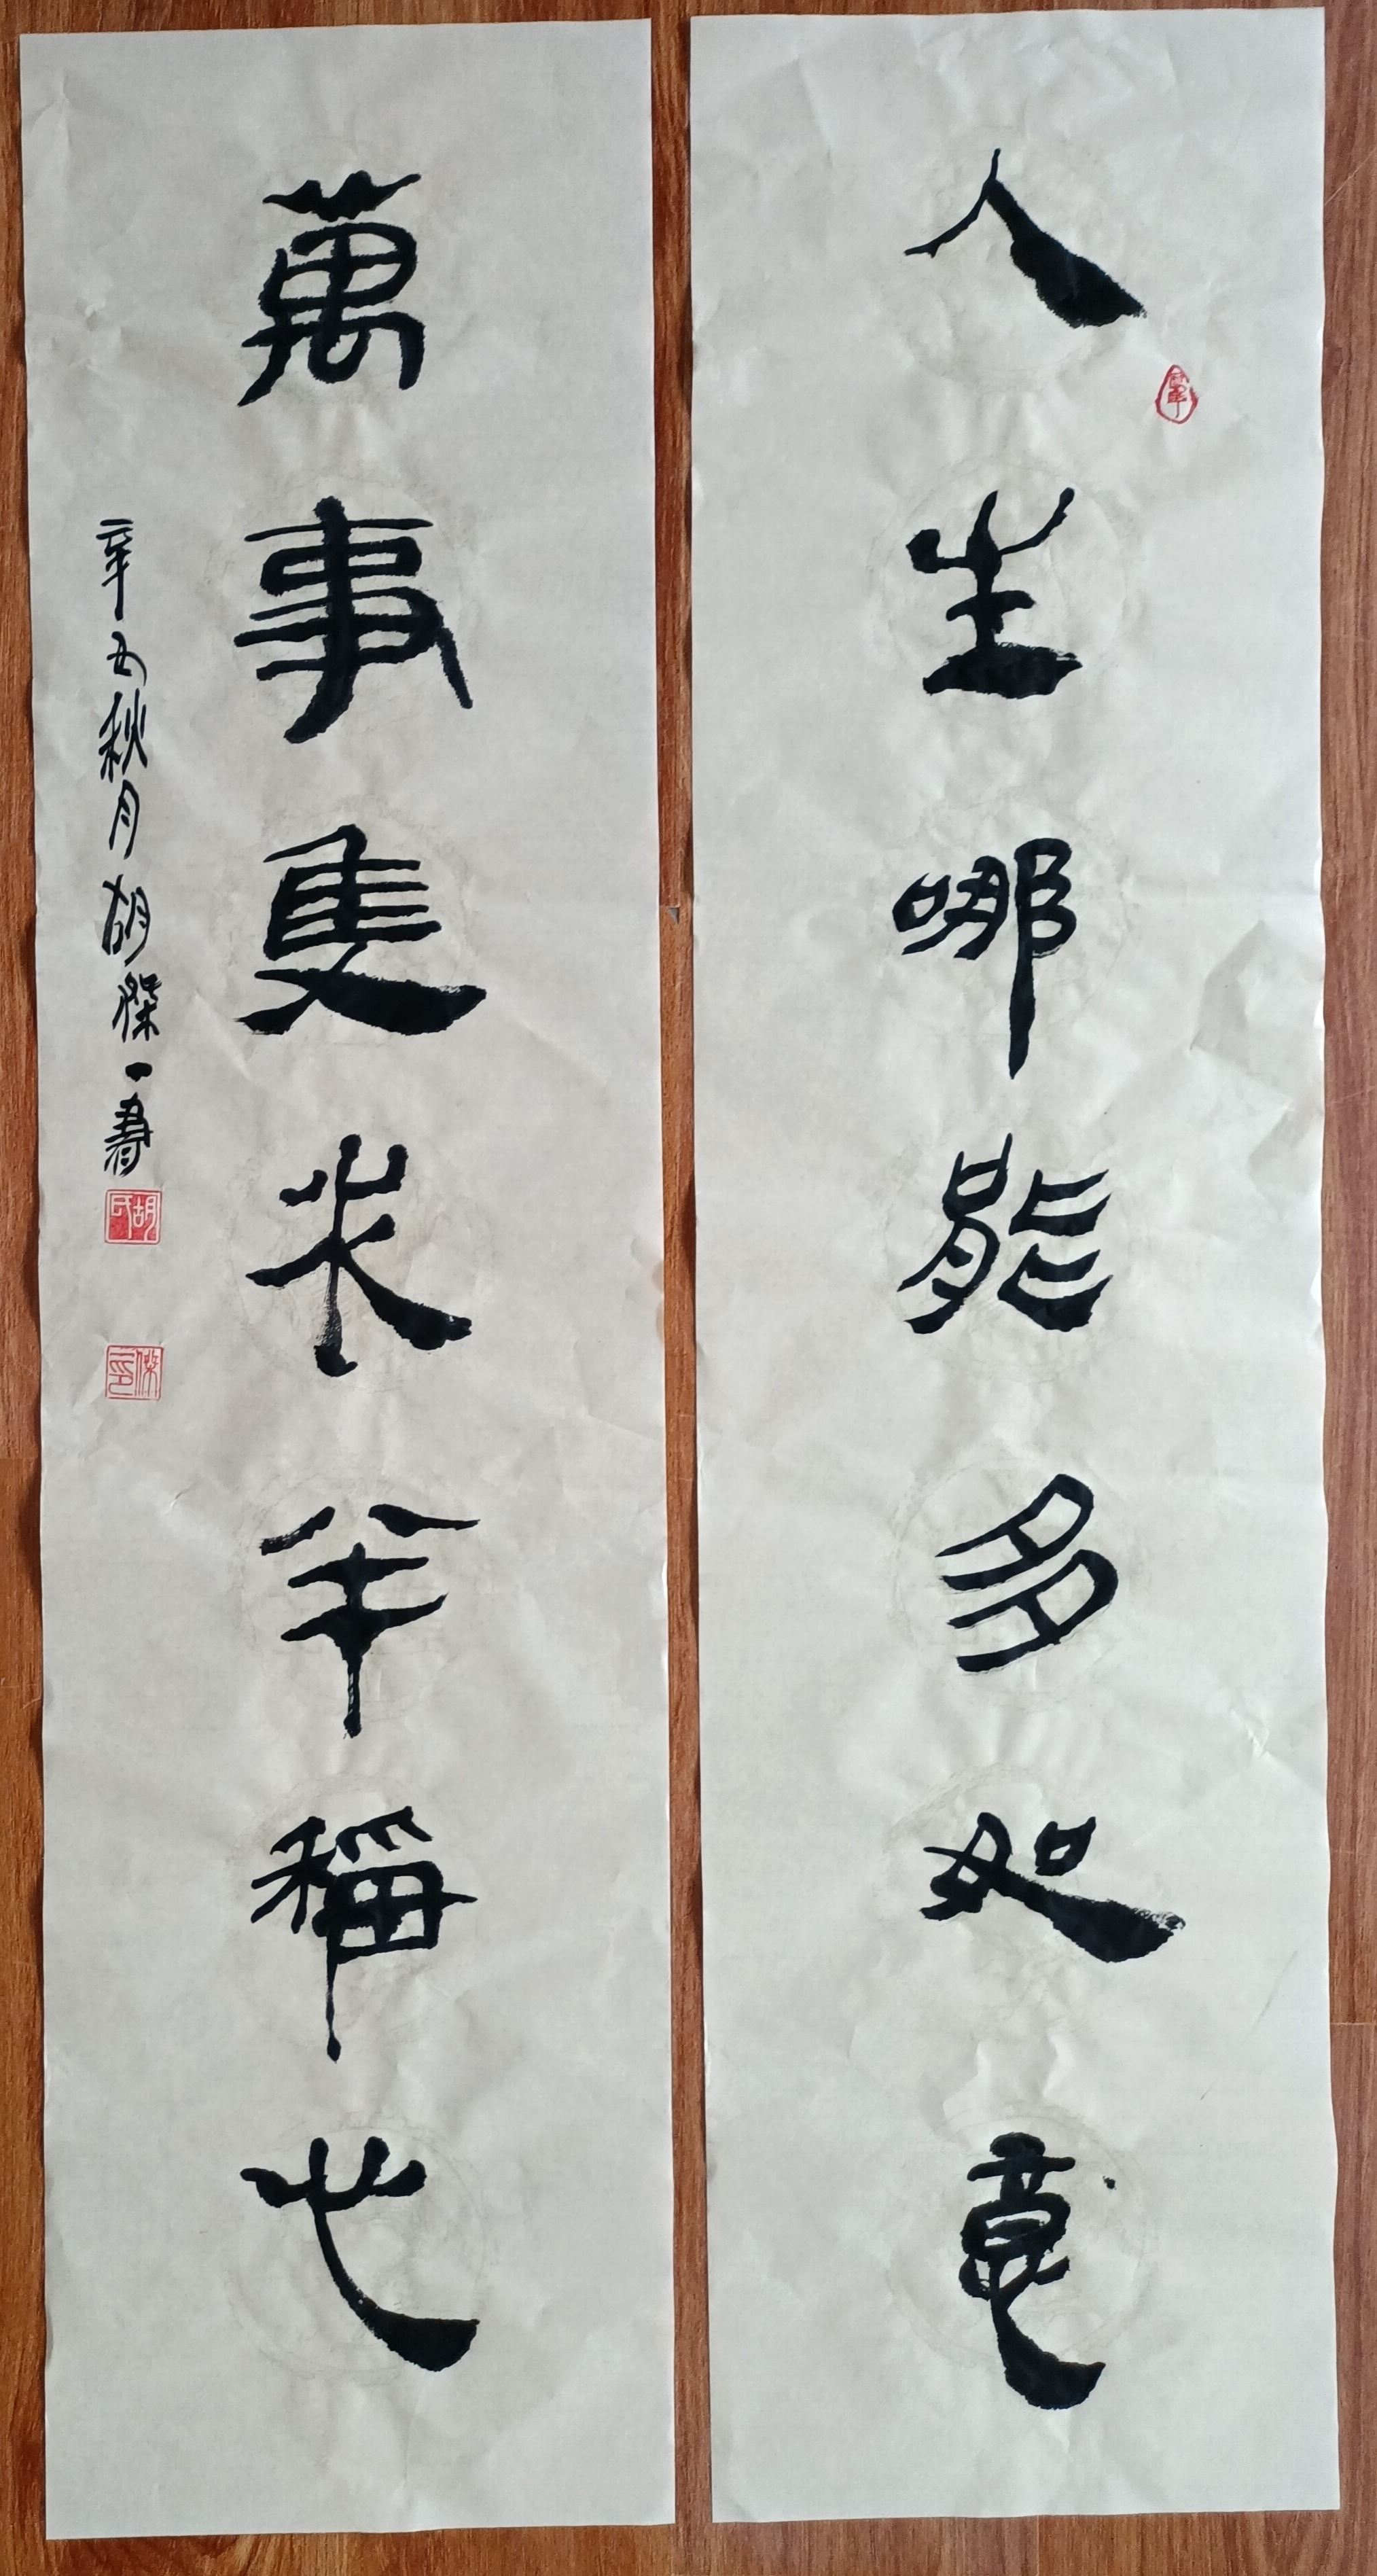 人生哪能多如意
萬事隻求半稱心
辛丑秋月胡傑一書
胡氏
傑印